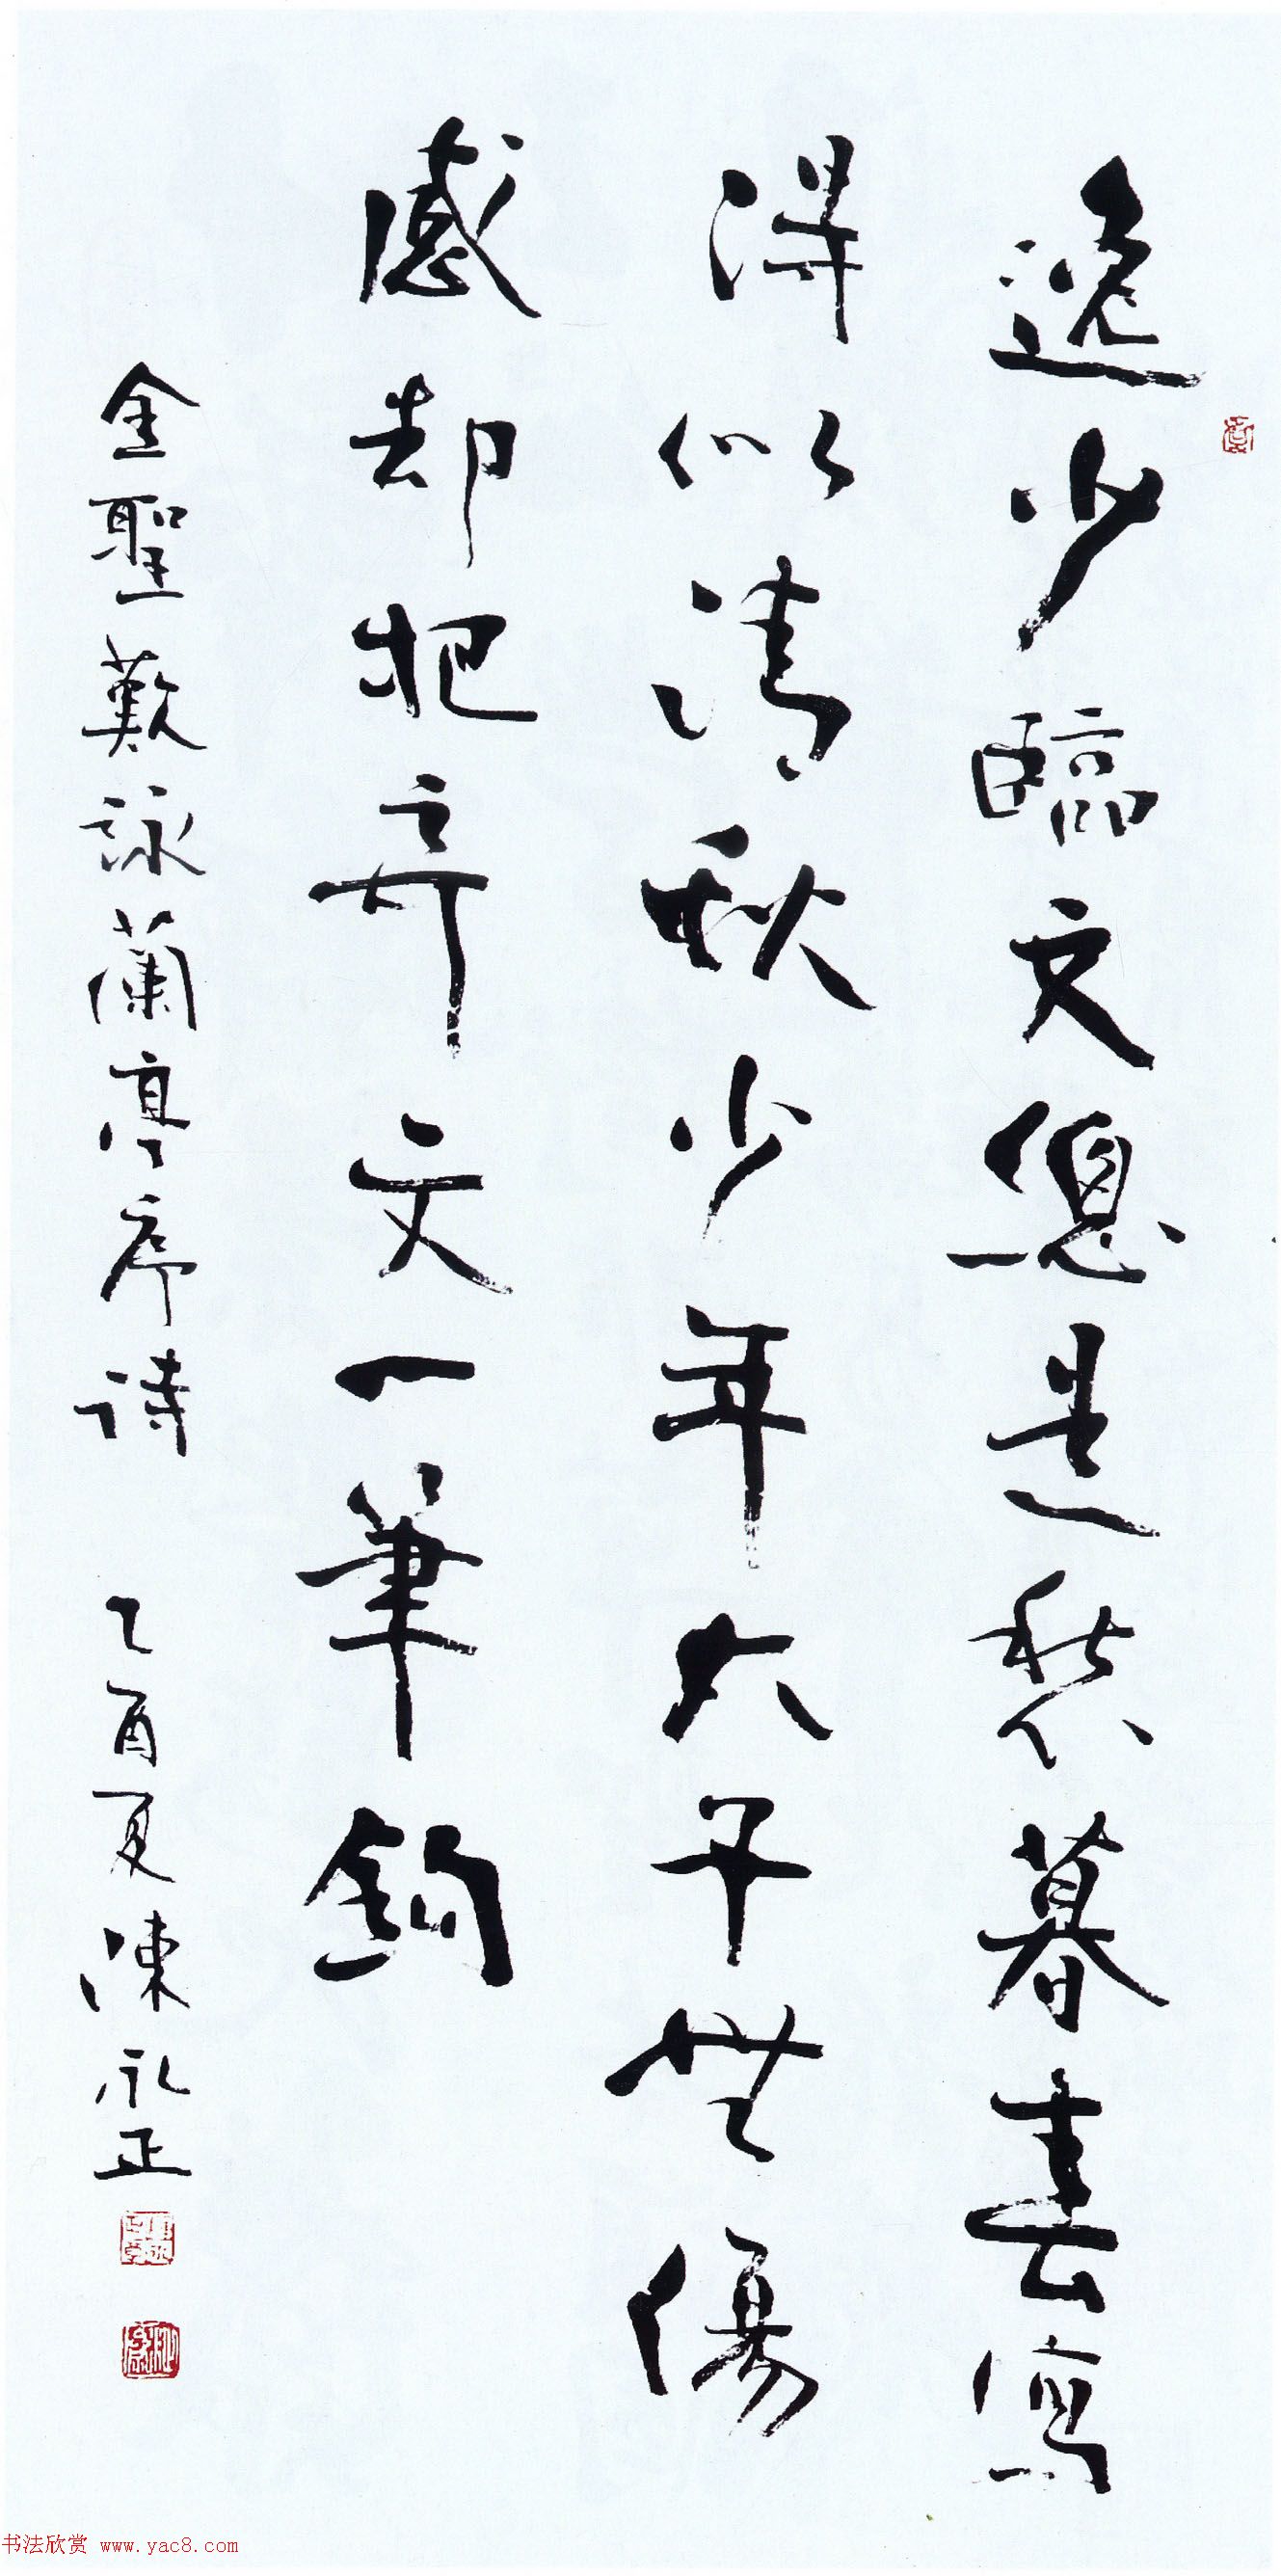 逸少臨文總是愁暮春寫
得似清秋少年太子無傷
感却把奇文一筆鈎
金聖歎詠蘭亭序詩 乙酉夏陳永正
书法欣赏 www.yac8.com